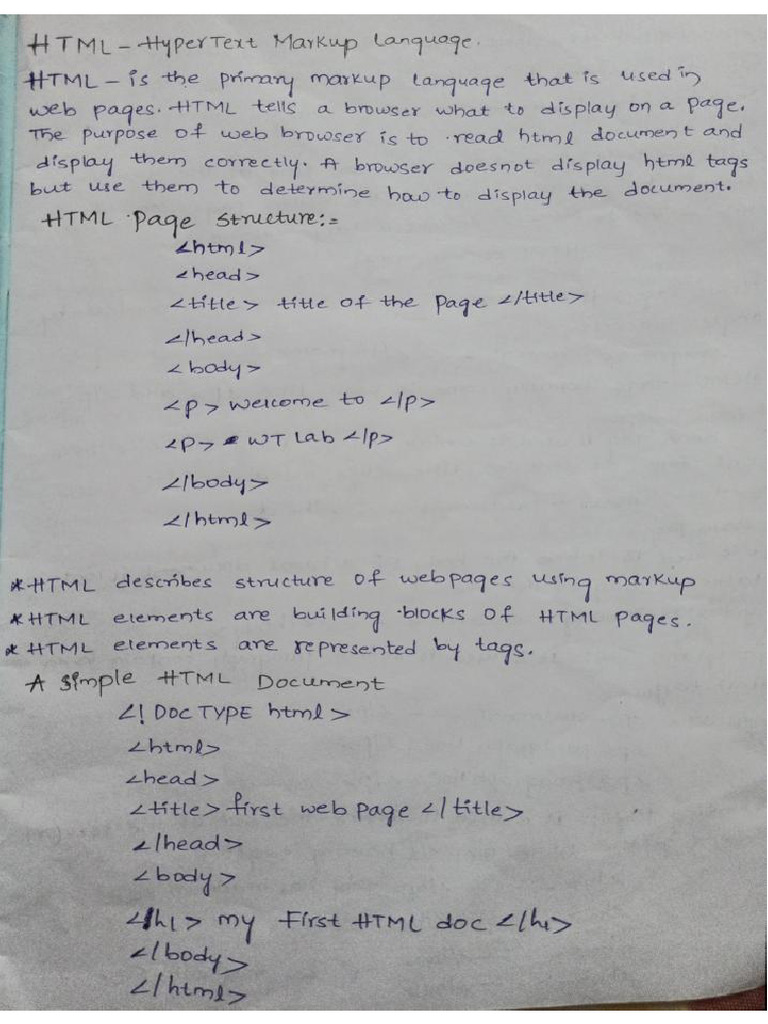 HTML - HyperText Markup Language.
HTML - is the primary markup language that is used in
web pages. HTML tells a browser what to display on a page.
The purpose of web browser is to read html document and
display them correctly. A browser doesnot display html tags
but use them to determine how to display the document.
HTML Page Structure:-
<html>
<head>
<title> title of the page </title>
</head>
<body>
<p> welcome to </p>
<p> WT Lab </p>
</body>
</html>
* HTML describes structure of webpages using markup
* HTML elements are building blocks of HTML pages.
* HTML elements are represented by tags.
A Simple HTML Document
<! DOCTYPE html>
<html>
<head>
<title> first web page </title>
</head>
<body>
<h1> my First HTML doc </h1>
</body>
</html>